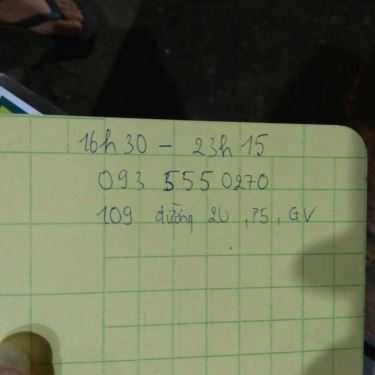 16h30 - 23h15
093 555 0270
109 đường 20, P5, GV